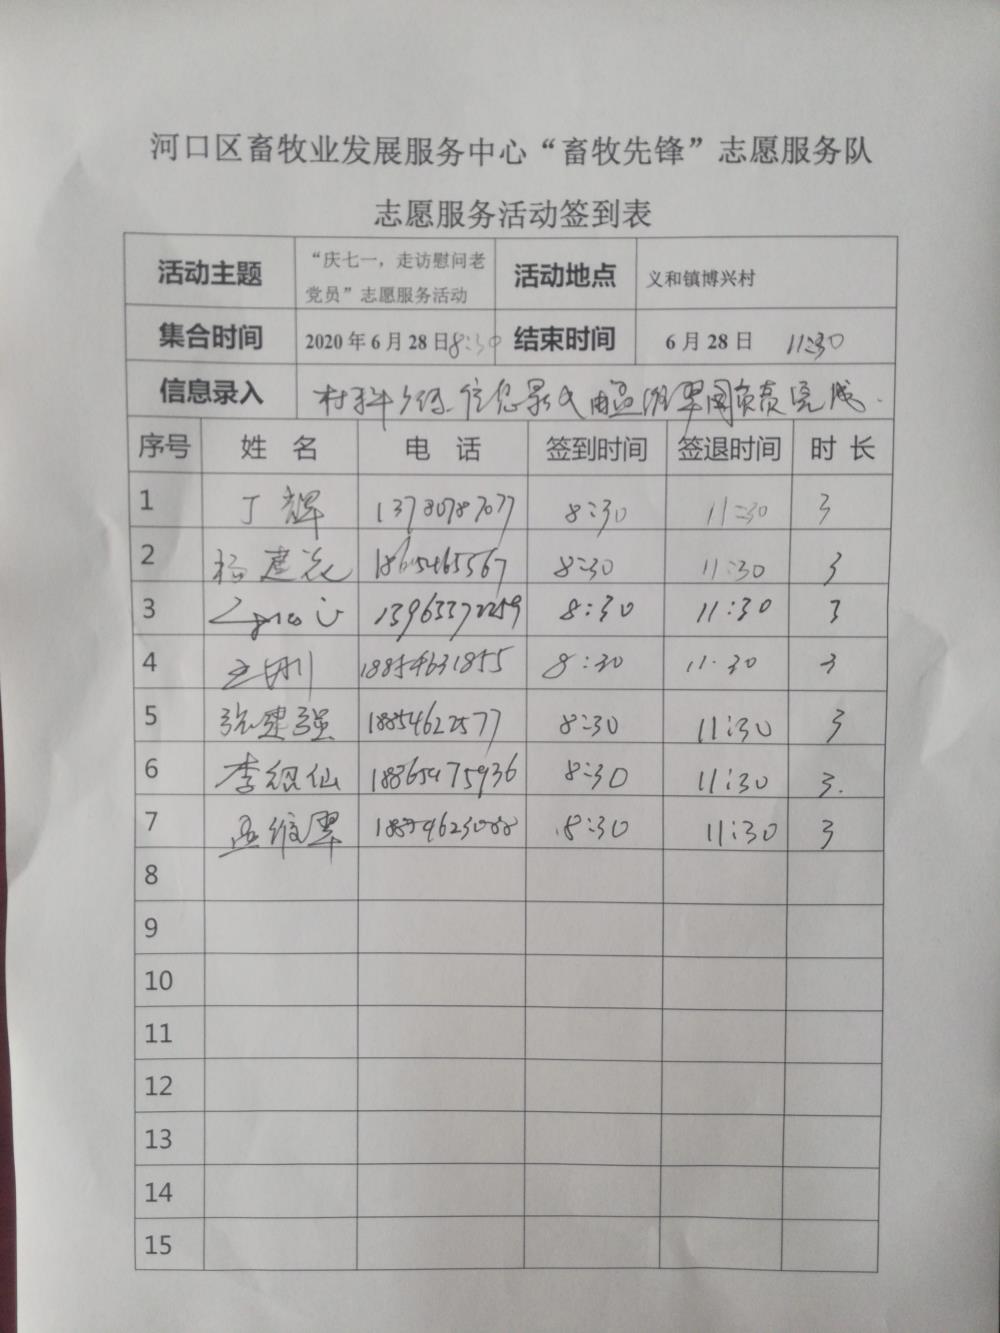 河口区畜牧业发展服务中心“畜牧先锋”志愿服务队
志愿服务活动签到表
活动主题 “庆七一，走访慰问老党员”志愿服务活动 活动地点 义和镇博兴村
集合时间 2020年6月28日8:30 结束时间 6月28日 11:30
信息录入 信息录入由孟维翠同负责完成.
序号 姓 名 电 话 签到时间 签退时间 时 长
1 丁辉 13780787077 8:30 11:30 3
2 杨建 18615465567 8:30 11:30 3
3 13963372259 8:30 11:30 3
4 王刚 18854631855 8:30 11:30 3
5 张建强 18854622577 8:30 11:30 3
6 李绍仙 18865475936 8:30 11:30 3.
7 孟维翠 8:30 11:30 3
8
9
10
11
12
13
14
15